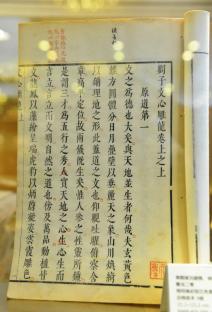 劉子文心雕龍卷上之上
原道第一
文之為德也大矣與天地並生者何哉夫玄黃色
雜方圓體分日月疊璧以垂麗天之象山川煥綺
以鋪理地之形此蓋道之文也仰觀吐曜俯察含
章高卑定位故兩儀既生矣惟人參之性靈所鍾
是謂三才為五行之秀人實天地之心生心生而
言立言立而文明自然之道也傍及萬品動植皆
文龍鳳以藻繪呈瑞虎豹以炳蔚凝姿雲霞雕色
文心雕龍卷上